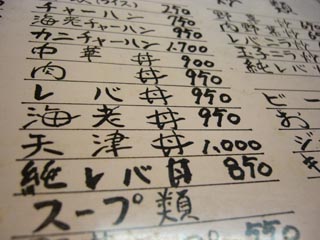 チャーハン 750
海老チャーハン 950
カニチャーハン 1,700
中華丼 900
肉丼 950
レバ丼 950
海老丼 950
天津丼 1,000
純レバ丼 850
スープ類
550
類
純レバ
ビー
お
ジ